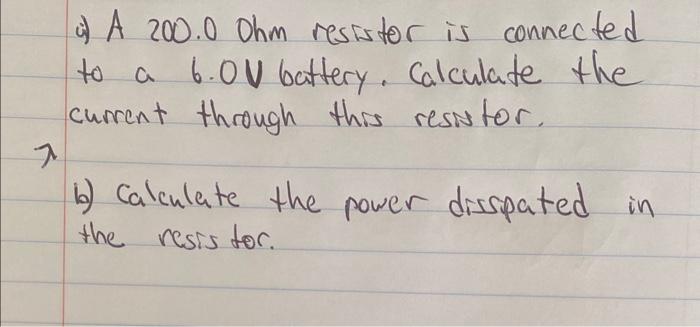 a) A 200.0 Ohm resistor is connected
to a 6.0V battery. Calculate the
current through this resistor.
b) Calculate the power disspated in
the resistor.